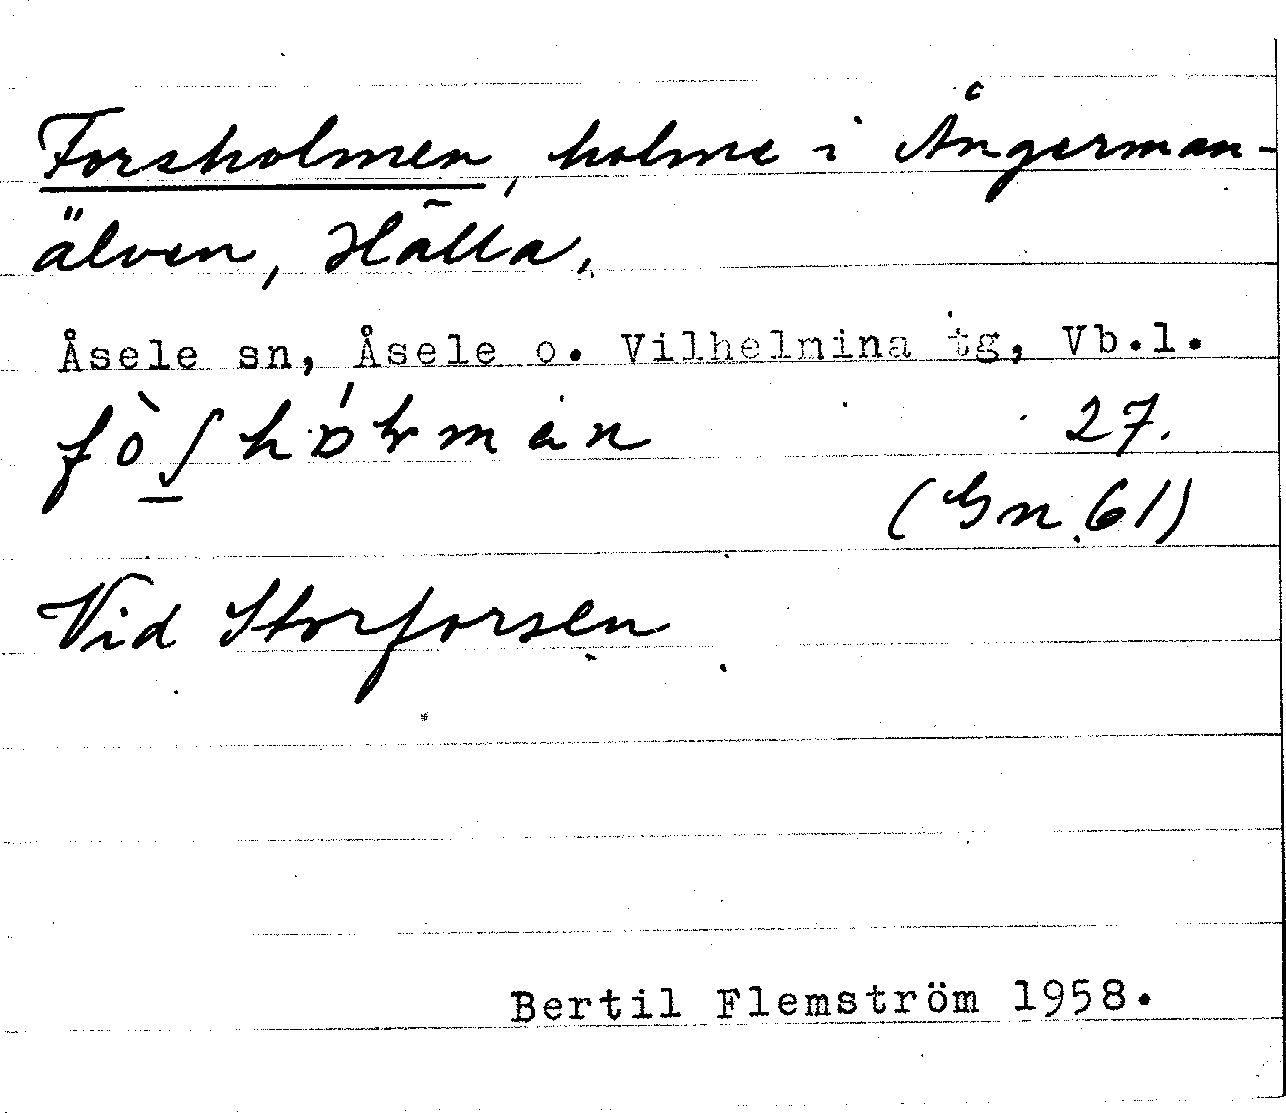 Forsholmen, holme i Ångerman-
älven, Hälla.
Åsele sn, Åsele o. Vilhelnina tg, Vb.l.
27.
(Gn 61)
Vid Storforsen
Bertil Flemström 1958.